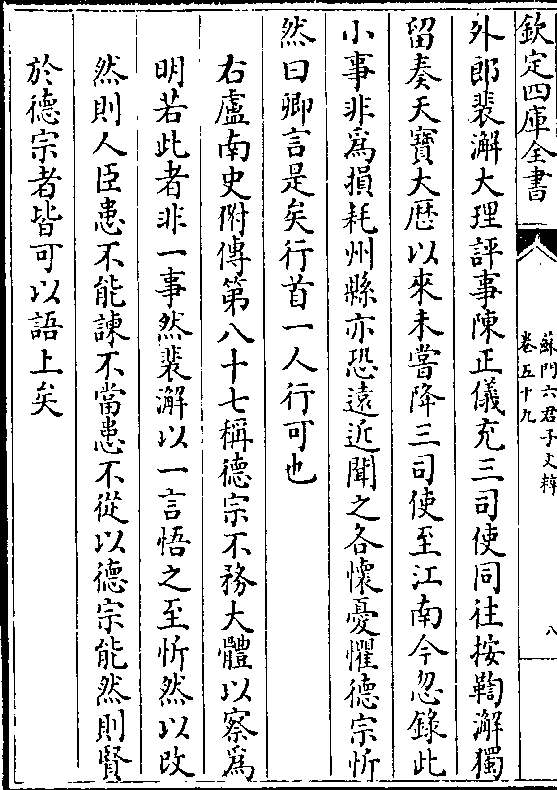 欽定四庫全書
蘇門六君子文粹
卷五十九
八
外郎裴澥大理評事陳正儀充三司使同往按鞫澥獨
留奏天寶大歴以來未嘗降三司使至江南今忽錄此
小事非爲損耗州縣亦恐遠近聞之各懷憂懼德宗忻
然曰卿言是矣行首一人行可也
右盧南史附傳第八十七稱德宗不務大體以察爲
明若此者非一事然裴澥以一言悟之至忻然以改
然則人臣患不能諫不當患不從以德宗能然則賢
於德宗者皆可以語上矣